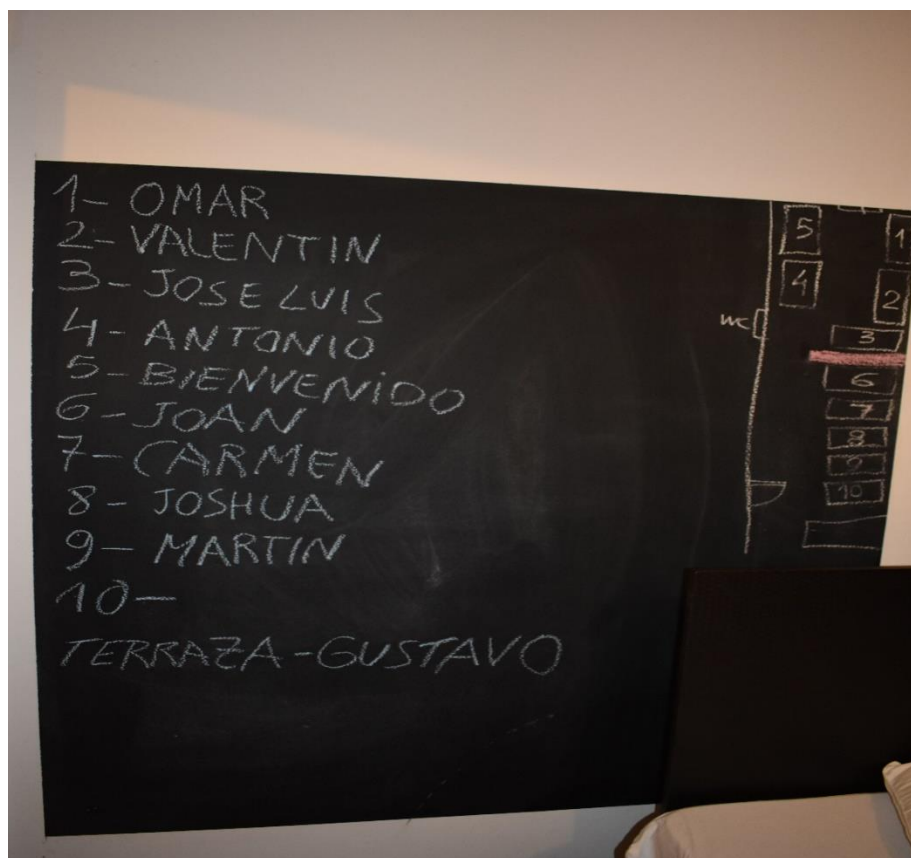 1- OMAR
2- VALENTIN
3- JOSE LUIS
4- ANTONIO
5- BIENVENIDO
6- JOAN
7- CARMEN
8- JOSHUA
9- MARTIN
10-
TERRAZA - GUSTAVO
5
1
4
2
WC
3
6
7
8
9
10